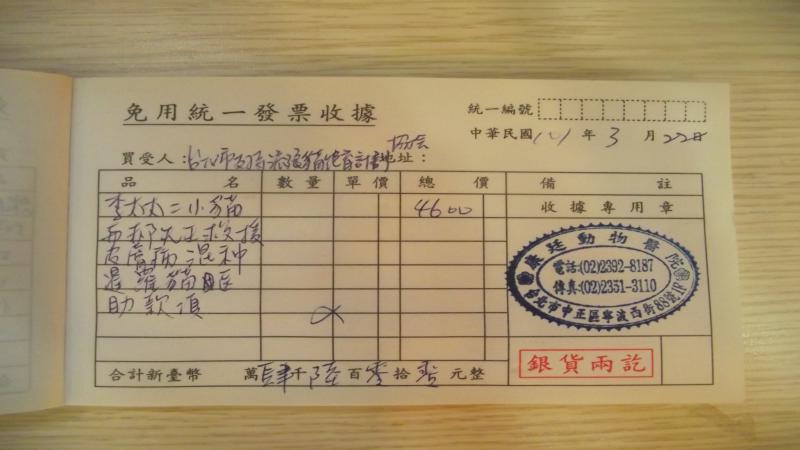 免用統一發票收據
統一編號
中華民國 101 年 3 月 22 日
買受人：台北市支持流浪貓絕育計劃協會 地址：
品名 數量 單價 總價 備註
李太太二小貓 4600 收據專用章
皮膚病混種
暹羅貓
助款項
動物醫院
電話:(02)2392-8187
傳真:(02)2351-3110
台北市中正區寧波西街88號1F
合計新臺幣 萬肆千陸百零拾零元整
銀貨兩訖